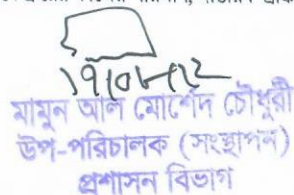 ১৭/০৮/২২
মামুন আল মোর্শেদ চৌধুরী
উপ-পরিচালক (সংস্থাপন)
প্রশাসন বিভাগ